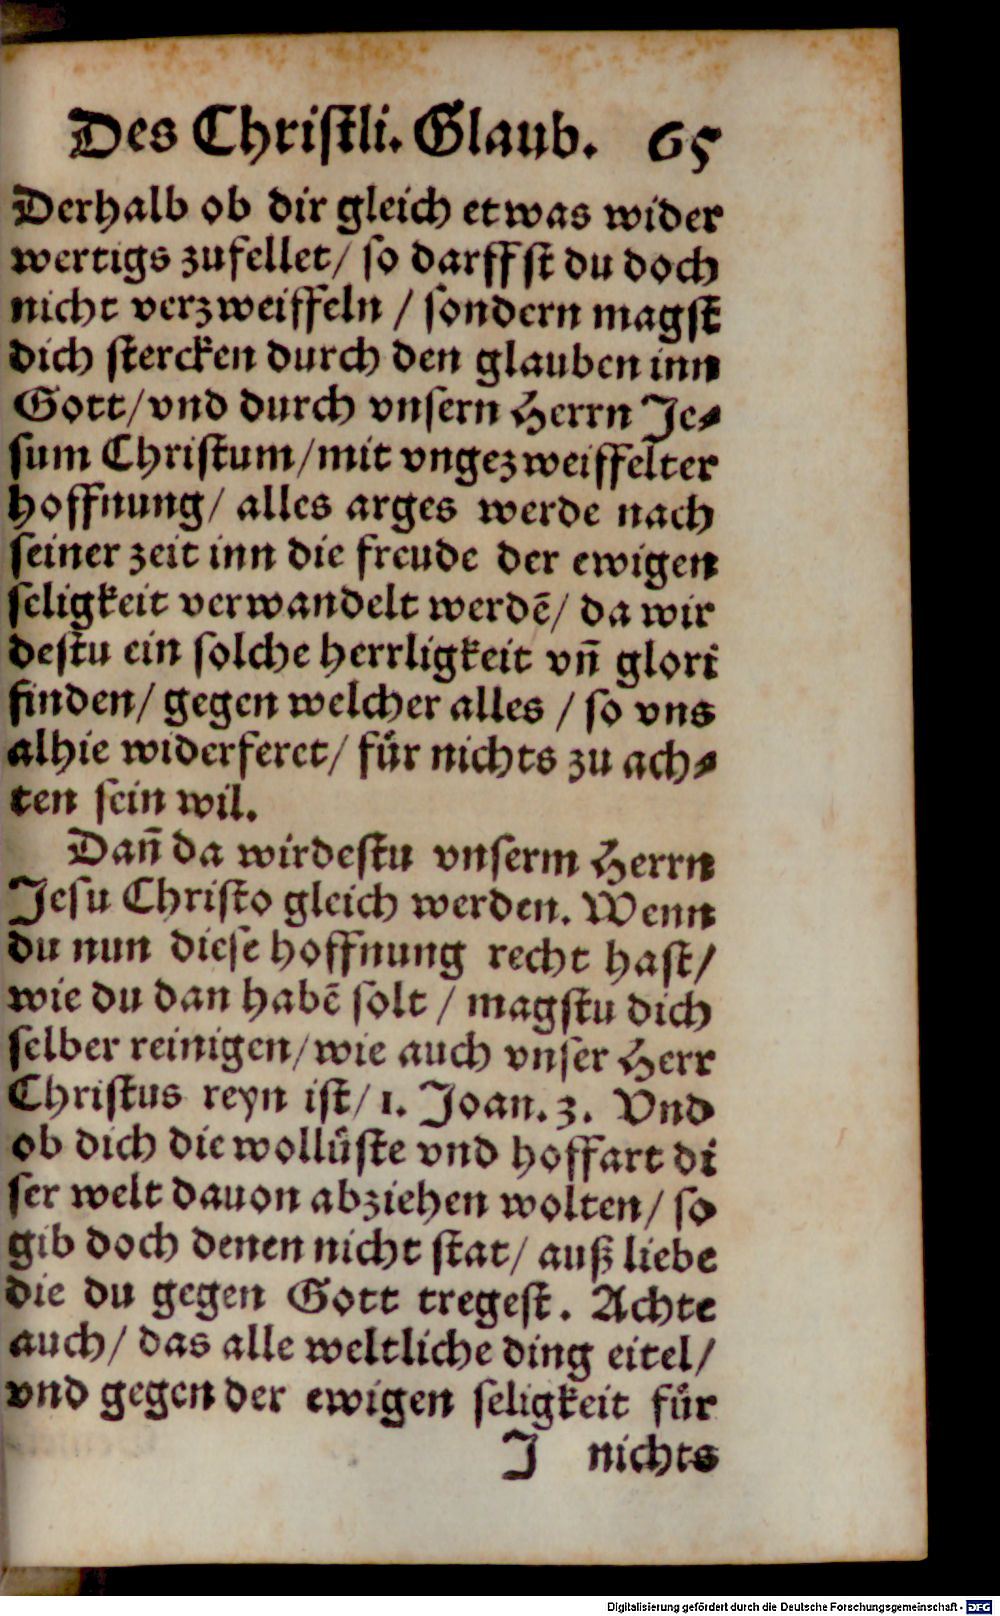 Des Christli. Glaub. 65
Derhalb ob dir gleich etwas wider
wertigs zufellet/ so darffst du doch
nicht verzweiffeln / sondern magst
dich stercken durch den glauben inn
Gott/vnd durch vnsern Herrn Je⸗
sum Christum/mit vngezweiffelter
hoffnung/ alles arges werde nach
seiner zeit inn die freude der ewigen
seligkeit verwandelt werdē/ da wir
destu ein solche herrligkeit vn̄ glori
finden/ gegen welcher alles / so vns
alhie widerferet/ für nichts zu ach⸗
ten sein wil.
Dan̄ da wirdestu vnserm Herrn
Jesu Christo gleich werden. Wenn
du nun diese hoffnung recht hast/
wie du dan habē solt / magstu dich
selber reinigen/wie auch vnser Herr
Christus reyn ist/1. Joan. 3. Vnd
ob dich die wollüste vnd hoffart di
ser welt dauon abziehen wolten/ so
gib doch denen nicht stat/ auß liebe
die du gegen Gott tregest. Achte
auch/ das alle weltliche ding eitel/
vnd gegen der ewigen seligkeit für
J nichts
Digitalisierung gefördert durch die Deutsche Forschungsgemeinschaft - DFG